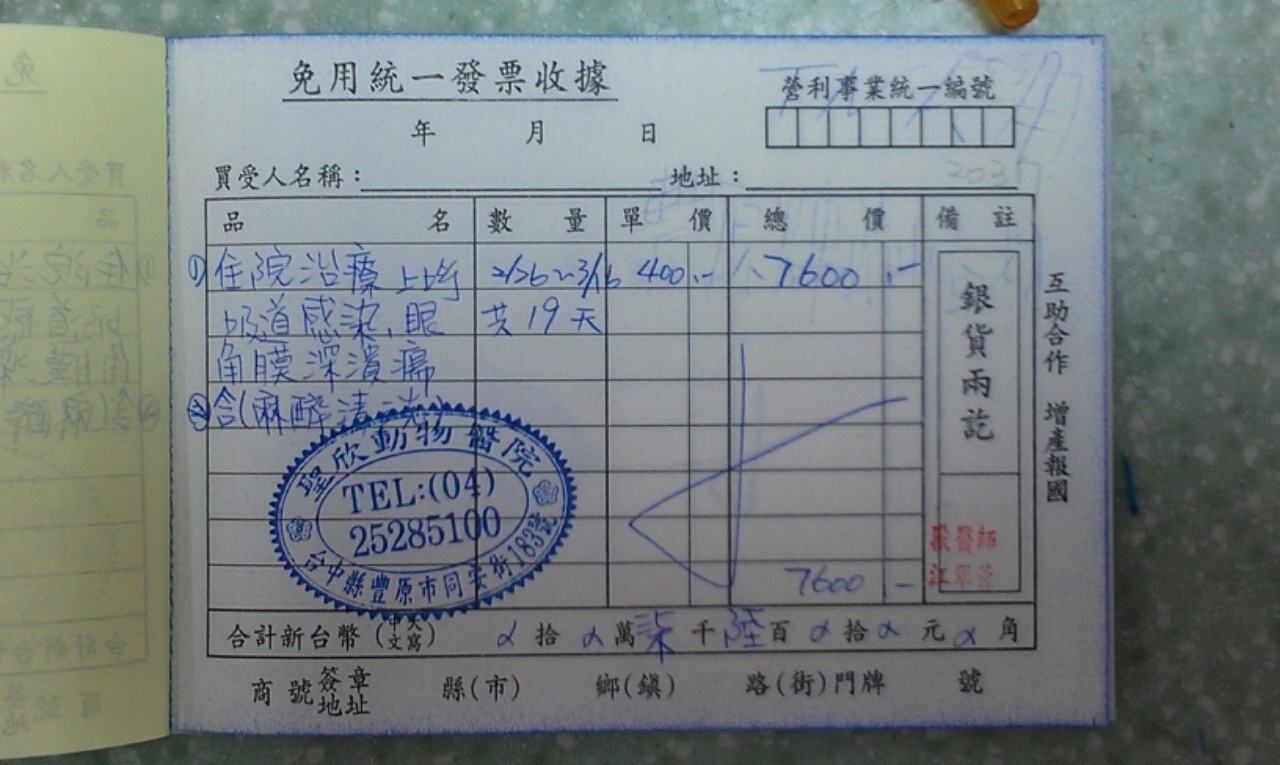 免用統一發票收據
營利事業統一編號
年 月 日
買受人名稱： 地址：
品名 數量 單價 總價 備註
①住院治療上呼 2/26~3/16 400.- 7600.-
吸道感染、眼 共19天
角膜深潰瘍
②含(麻醉清洗)
銀貨兩訖
互助合作 增產報國
聖欣動物醫院
TEL:(04)
25285100
台中縣豐原市同安街183號
獸醫師
江翠
7600 -
合計新台幣(中文大寫) 拾 萬柒千陸百 拾 元 角
商號簽章地址 縣(市) 鄉(鎮) 路(街)門牌 號